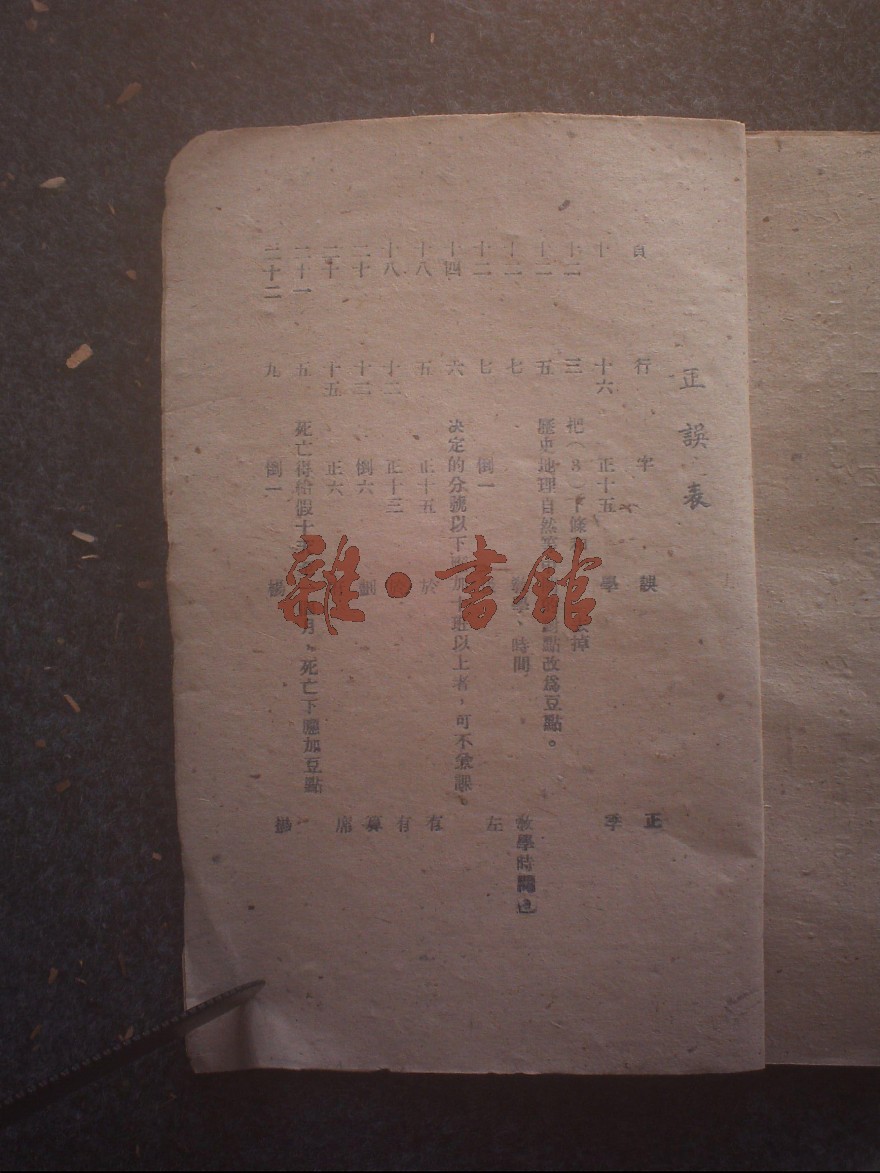 正誤表
頁 行 字 誤 正
十 十六 正十五 學 季
十二 三 把（8）下條 掉
十二 五 歷史地理自然 點改爲豆點。
十二 七 學、時間 敎學時間
十二 七 倒一 左
十四 六 决定的分號以下 班以上者，可不兼課。
十八 五 正十五 於 有
十八 十二 正十三 有
二十 十三 倒六 劃 算
二十 十五 正六 席
二十一 五 死亡得給假十 月，死亡下應加豆點
二十二 九 倒一 楊
雜·書館